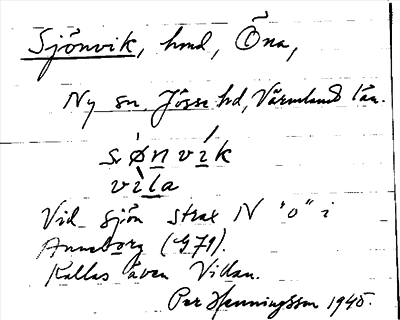 Sjönvik, hmd, Öna,
Ny sn. Jösse hd, Värmlands län.
s. ǿn vi̍k
vìla
Vid sjön strax N "o" i
Anneborg (G79).
Kallas även Villan.
Per Henningsson 1945.